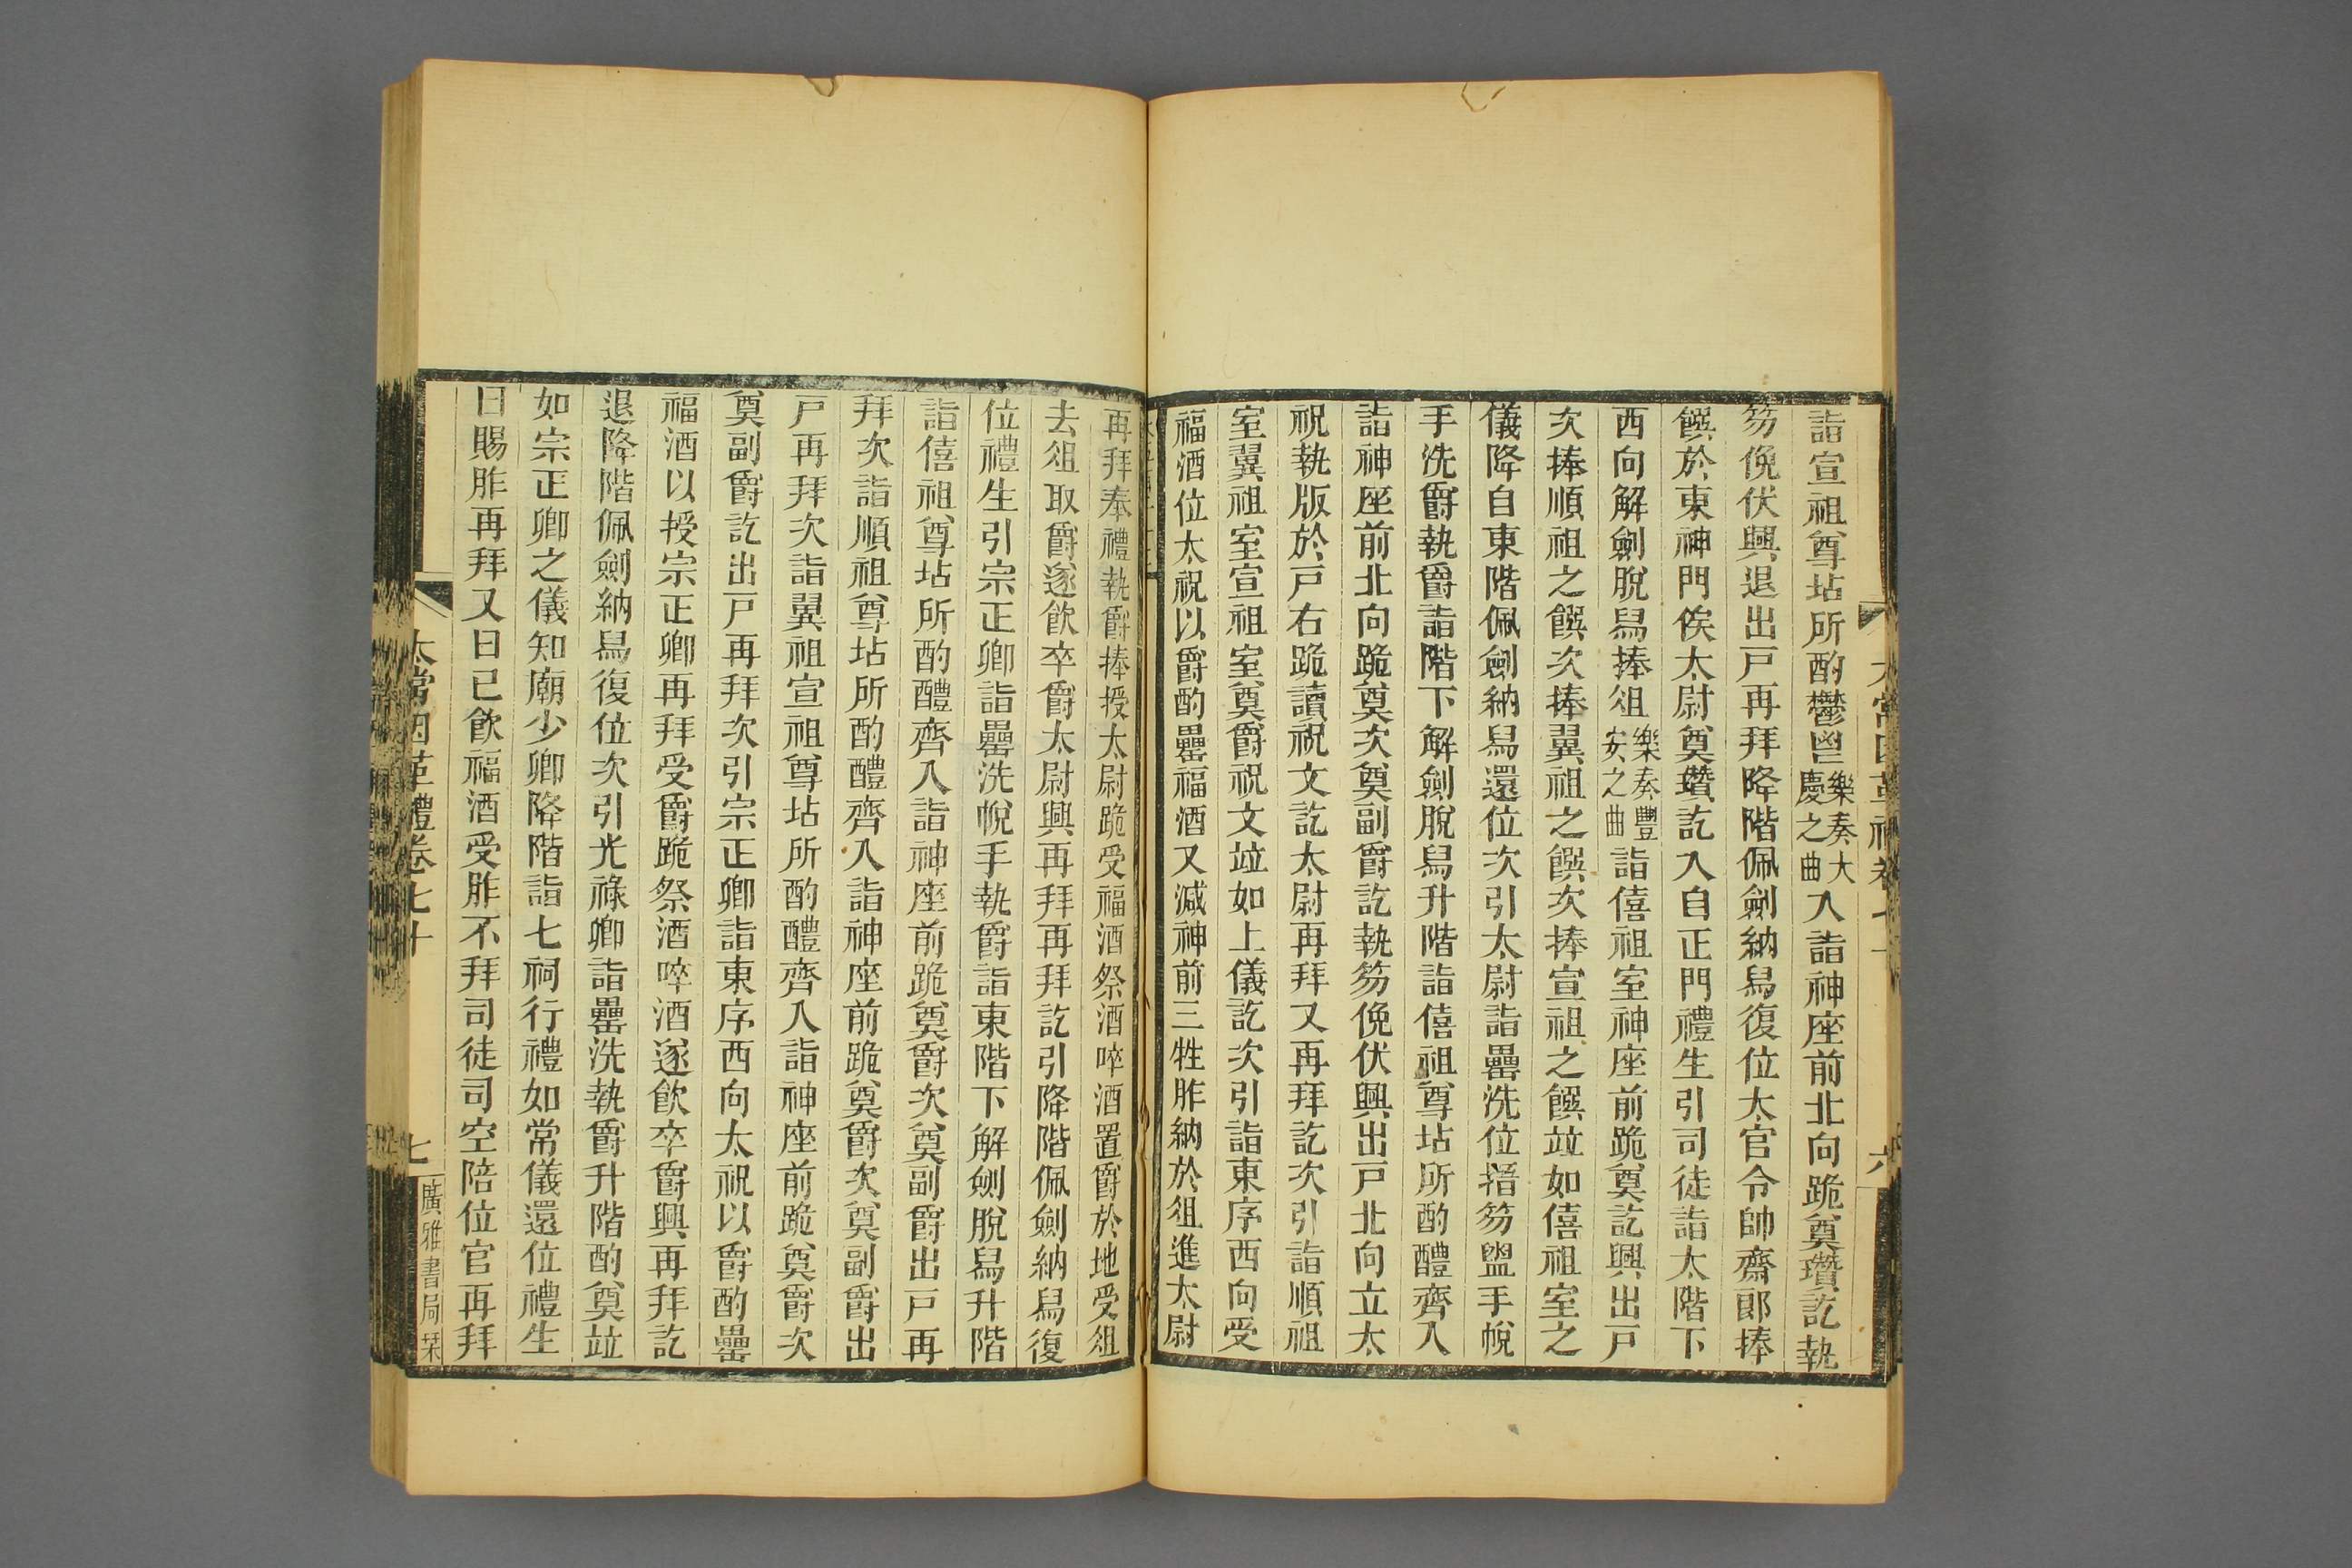 詣宣祖尊坫所酌鬱鬯樂奏大慶之曲入詣神座前北向跪奠瓚訖執
笏俛伏興退出戸再拜降階佩劍納舄復位太官令帥齋郞捧
饌於東神門俟太尉奠瓚訖入自正門禮生引司徒詣太階下
西向解劍脫舄捧俎樂奏豐安之曲詣僖祖室神座前跪奠訖興出戸
次捧順祖之饌次捧翼祖之饌次捧宣祖之饌竝如僖祖室之
儀降自東階佩劍納舄還位次引太尉詣罍洗位搢笏盥手帨
手洗爵執爵詣階下解劍脫舄升階詣僖祖尊坫所酌醴齊入
詣神座前北向跪奠次奠副爵訖執笏俛伏興出戸北向立太
祝執版於戸右跪讀祝文訖太尉再拜又再拜訖次引詣順祖
室翼祖室宣祖室奠爵祝文竝如上儀訖次引詣東序西向受
福酒位太祝以爵酌罍福酒又減神前三牲胙納於俎進太尉
再拜奉禮執爵捧授太尉跪受福酒祭酒啐酒置爵於地受俎
去俎取爵遂飮卒爵太尉興再拜再拜訖引降階佩劍納舄復
位禮生引宗正卿詣罍洗帨手執爵詣東階下解劍脫舄升階
詣僖祖尊坫所酌醴齊入詣神座前跪奠爵次奠副爵出戸再
拜次詣順祖尊坫所酌醴齊入詣神座前跪奠爵次奠副爵出
戸再拜次詣翼祖宣祖尊坫所酌醴齊入詣神座前跪奠爵次
奠副爵訖出戸再拜次引宗正卿詣東序西向太祝以爵酌罍
福酒以授宗正卿再拜受爵跪祭酒啐酒遂飮卒爵興再拜訖
退降階佩劍納舄復位次引光祿卿詣罍洗執爵升階酌奠竝
如宗正卿之儀知廟少卿降階詣七祠行禮如常儀還位禮生
曰賜胙再拜又曰已飮福酒受胙不拜司徒司空陪位官再拜
太常因革禮卷七十
七
廣雅書局栞